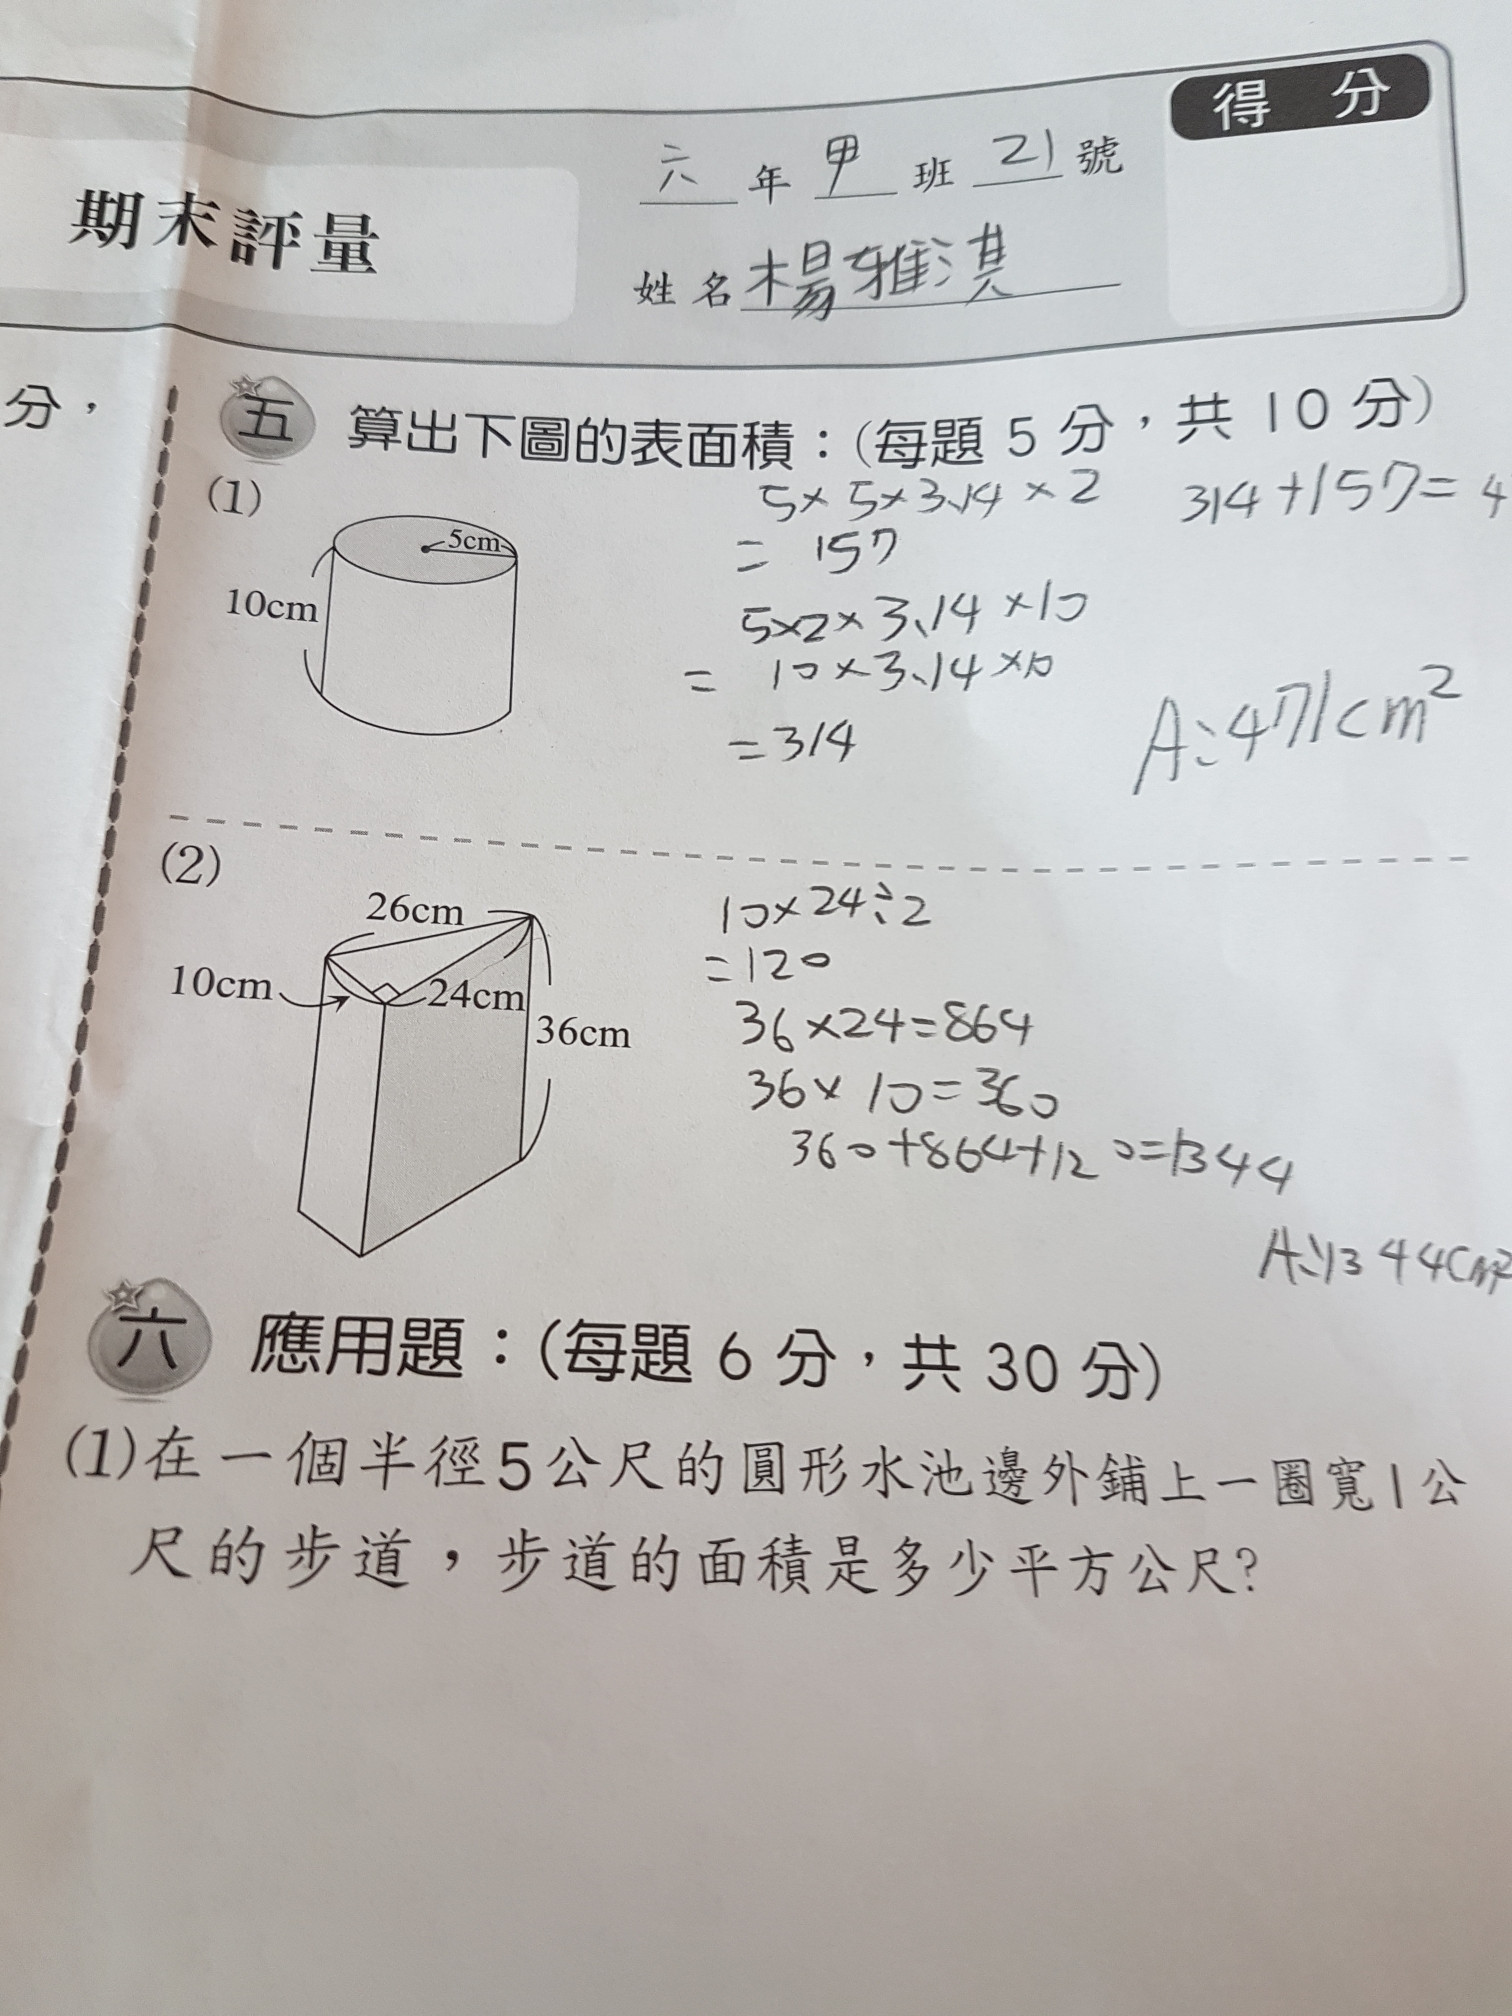 得 分
六 年 甲 班 21 號
期末評量
姓名 楊雅淇
分，
五 算出下圖的表面積：(每題 5 分，共 10 分)
(1)
5cm
10cm
5×5×3.14×2
= 157
5×2×3.14×10
= 10×3.14×10
=314
314+157=4
A:471cm²
(2)
26cm
10cm
24cm
36cm
10×24÷2
=120
36×24=864
36×10=360
360+864+120=1344
A:1344cm²
六 應用題：(每題 6 分，共 30 分)
(1)在一個半徑5公尺的圓形水池邊外鋪上一圈寬1公
尺的步道，步道的面積是多少平方公尺?